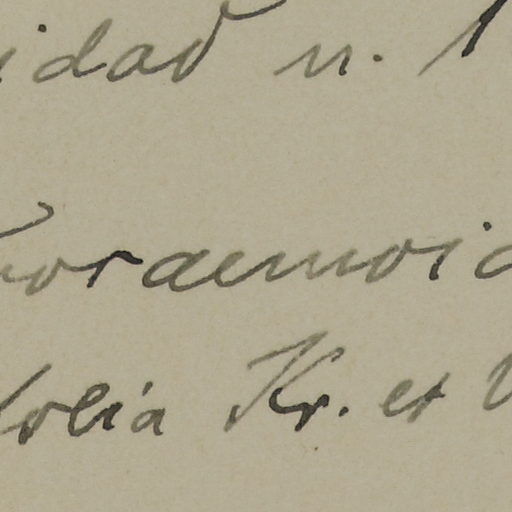 idad n. 1
oraemoid
folia Kr. et V